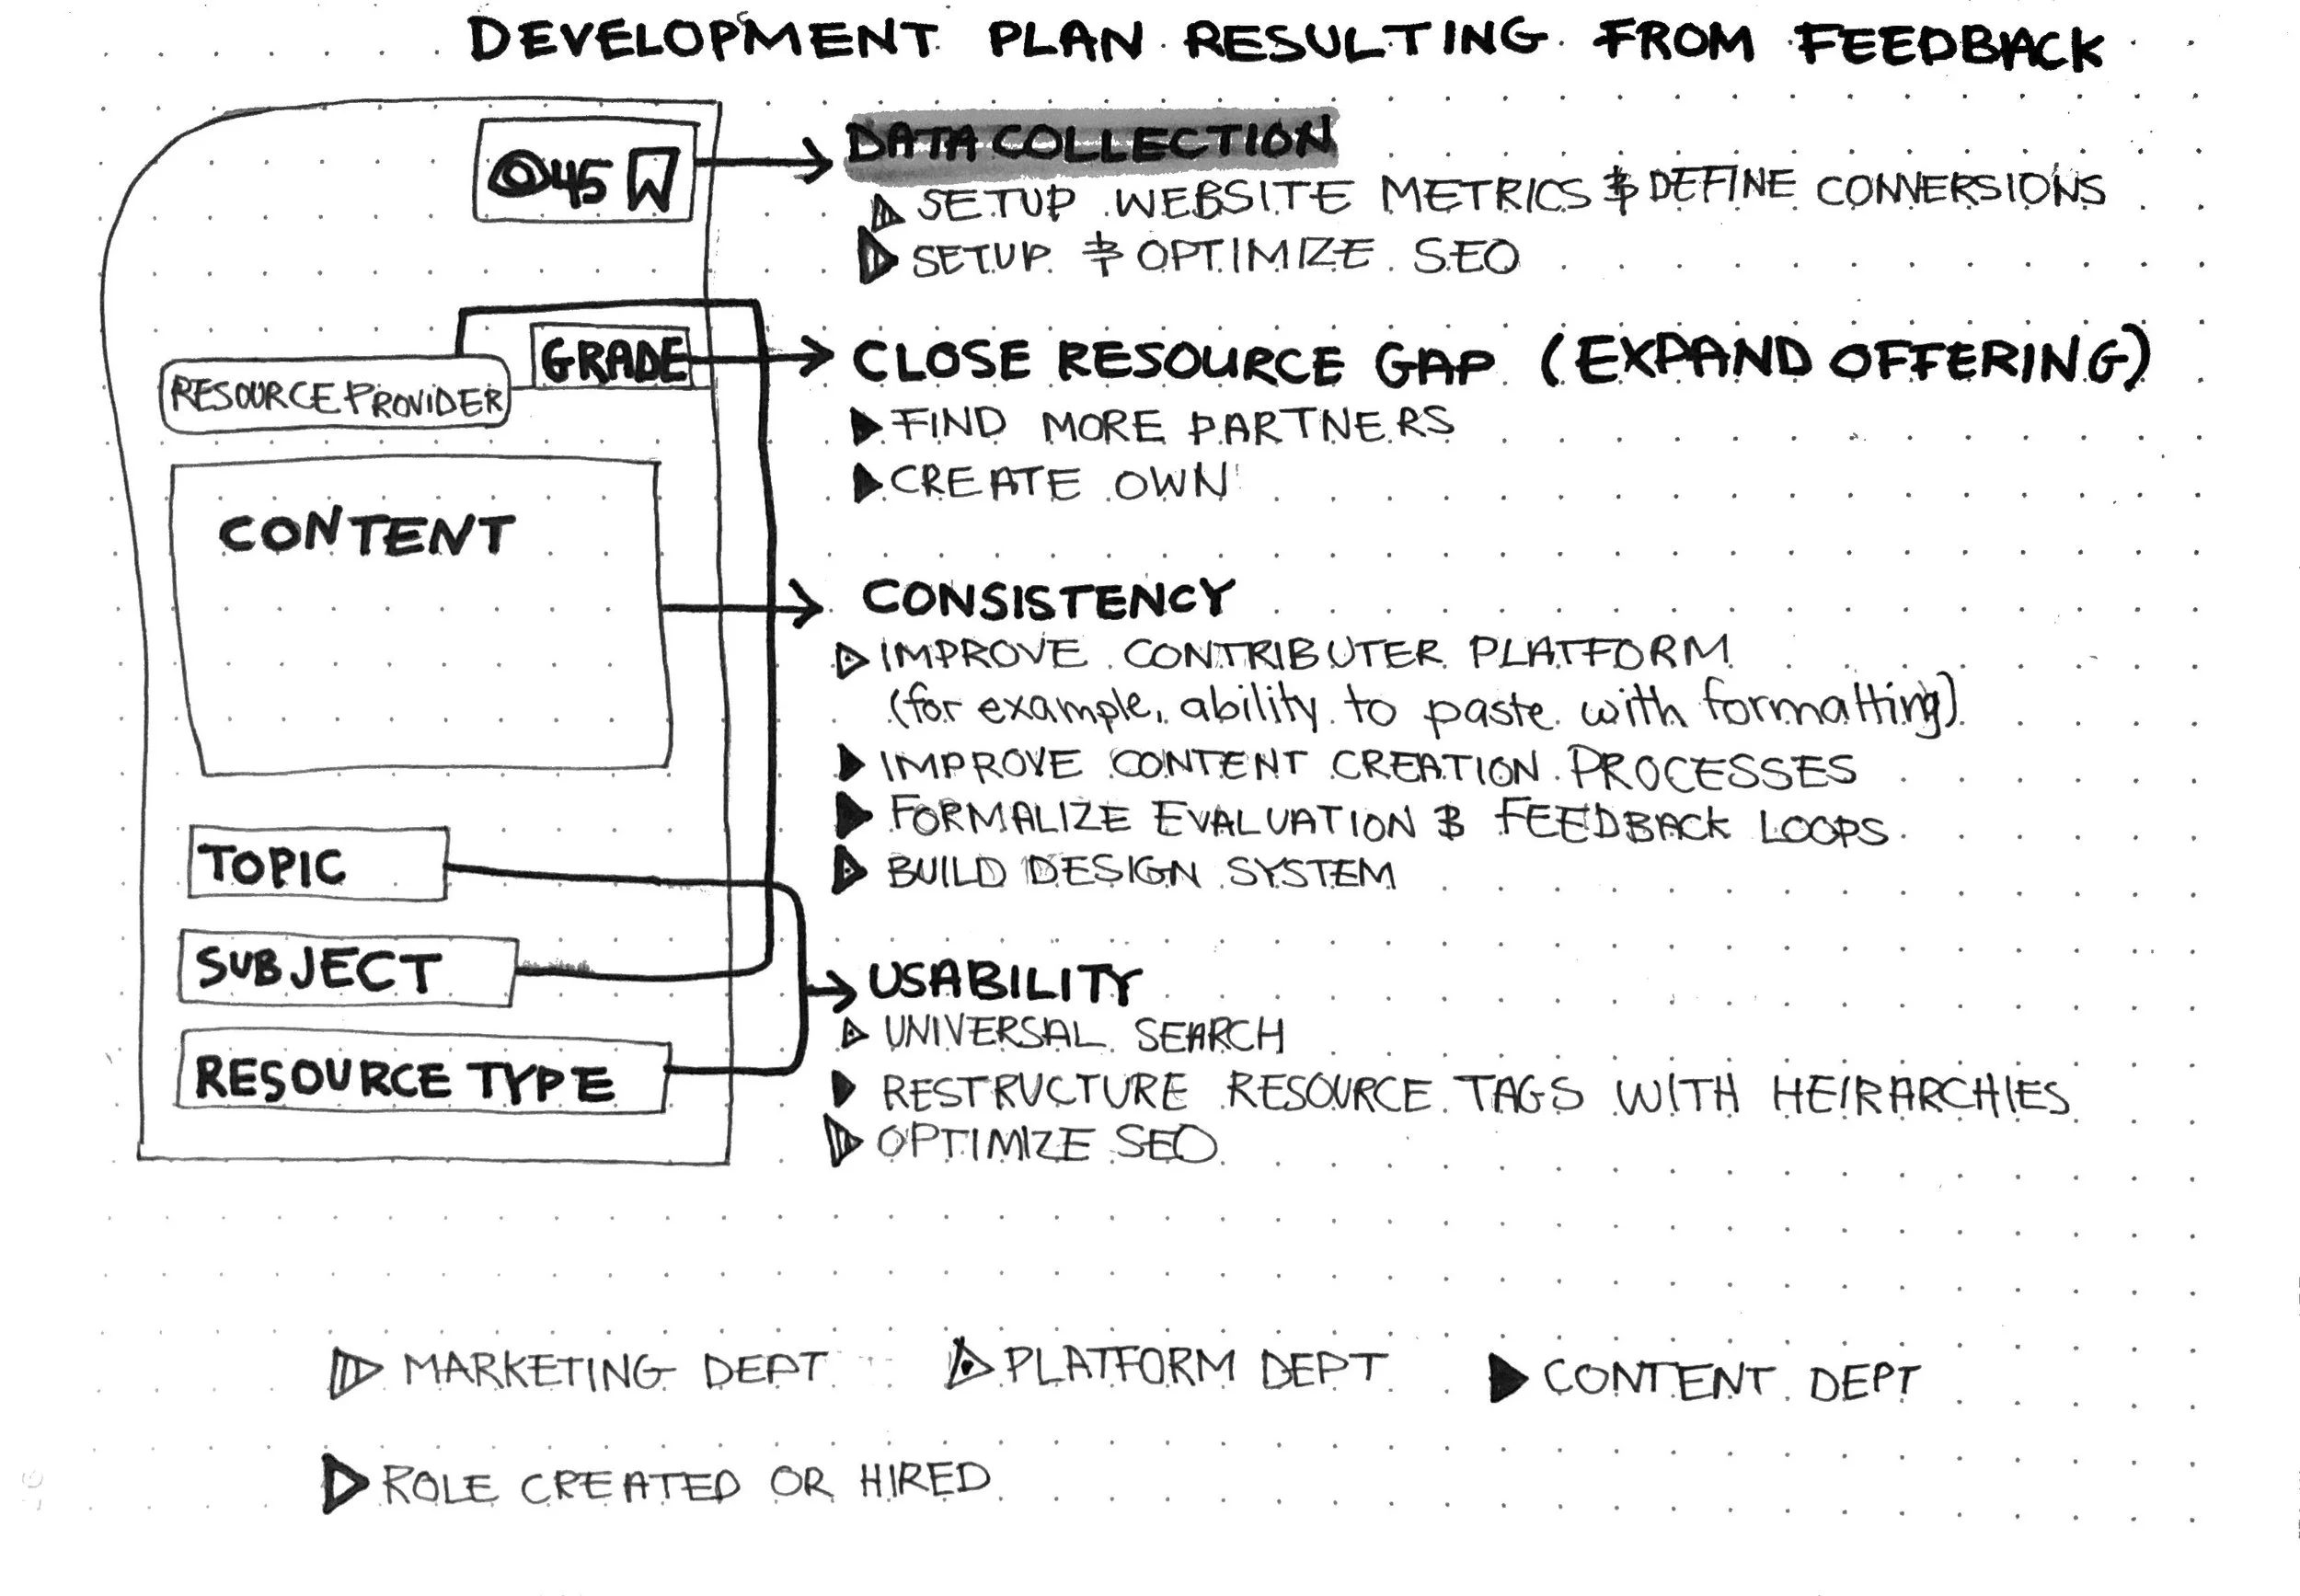 DEVELOPMENT PLAN RESULTING FROM FEEDBACK
45
DATA COLLECTION
SETUP WEBSITE METRICS & DEFINE CONVERSIONS
SETUP & OPTIMIZE SEO
RESOURCE PROVIDER
GRADE
CLOSE RESOURCE GAP (EXPAND OFFERING)
FIND MORE PARTNERS
CREATE OWN
CONTENT
CONSISTENCY
IMPROVE CONTRIBUTER PLATFORM
(for example, ability to paste with formatting)
IMPROVE CONTENT CREATION PROCESSES
FORMALIZE EVALUATION & FEEDBACK LOOPS
BUILD DESIGN SYSTEM
TOPIC
SUBJECT
RESOURCE TYPE
USABILITY
UNIVERSAL SEARCH
RESTRUCTURE RESOURCE TAGS WITH HEIRARCHIES
OPTIMIZE SEO
MARKETING DEPT
PLATFORM DEPT
CONTENT DEPT
ROLE CREATED OR HIRED